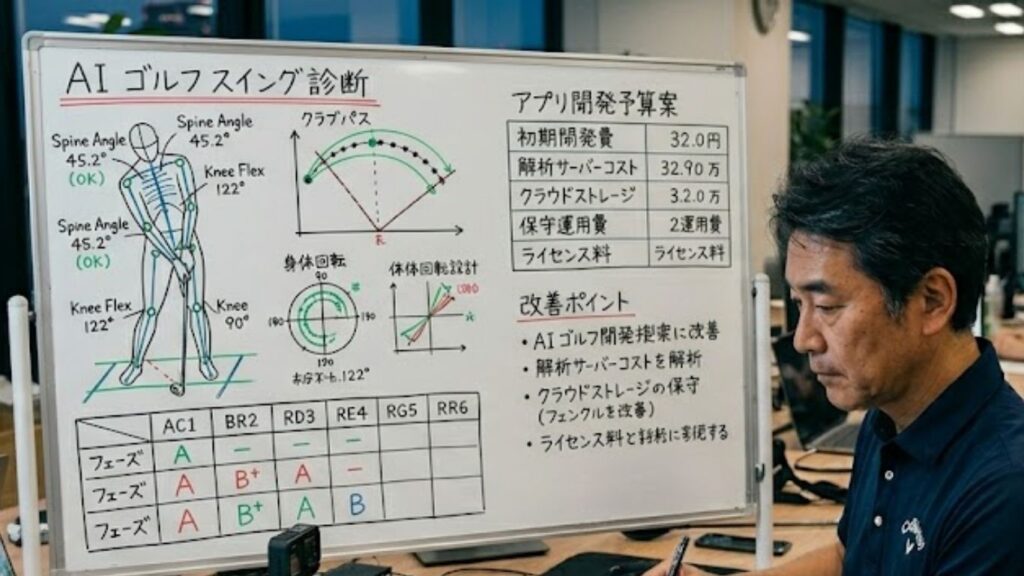 AI ゴルフスイング診断
Spine Angle
45.2°
(OK)
Spine Angle
45.2°
Knee Flex
122°
Spine Angle
45.2°
(OK)
Knee Flex
122°
Knee
90°
クラブパス
身体回転
90
180
190
190
122°
体体回転設計
AC1 BR2 RD3 RE4 RG5 RR6
フェーズ A – – –
フェーズ A B+ A –
フェーズ A B+ A B
アプリ開発予算案
初期開発費 32.0円
解析サーバーコスト 32.90万
クラウドストレージ 3.2.0万
保守運用費 2運用費
ライセンス料 ライセンス料
改善ポイント
・AIゴルフ開発提案に改善
・解析サーバーコストを解析
・クラウドストレージの保守
(フェンクルを改善)
・ライセンス料と する